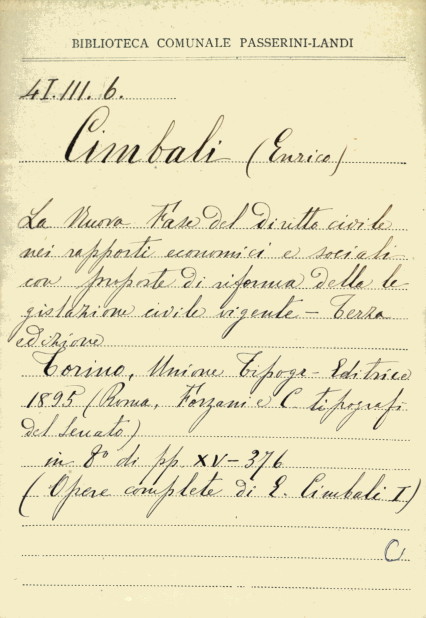 BIBLIOTECA COMUNALE PASSERINI-LANDI
4I.III.6.
Cimbali (Enrico)
La Nuova Fase del diritto civile
nei rapporti economici e sociali
con proposte di riforma della le
gislazione civile vigente - Terza
edizione
Torino, Unione Tipogr- Editrice
1895 (Roma, Forzani e C tipografi
del Senato)
in 8º di pp XV-376
(Opere complete di E. Cimbali I)
C